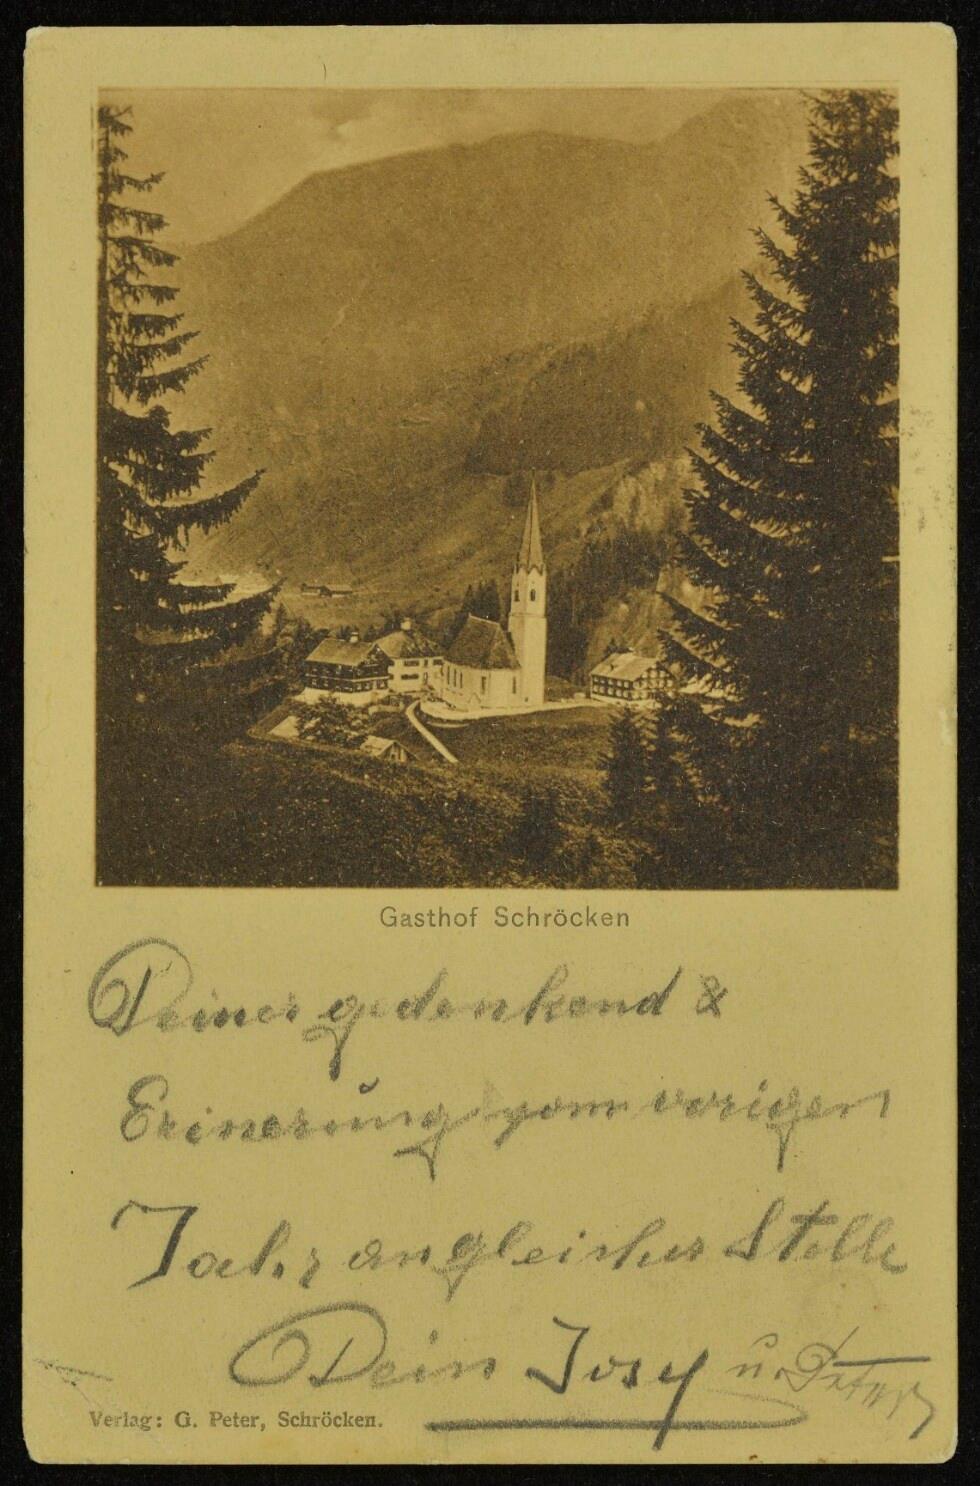 Gasthof Schröcken
Deiner gedenkend &
Erinerung vom vorigen
Jahr an gleicher Stelle
Dein Josy u. Peter
Verlag: G. Peter, Schröcken.